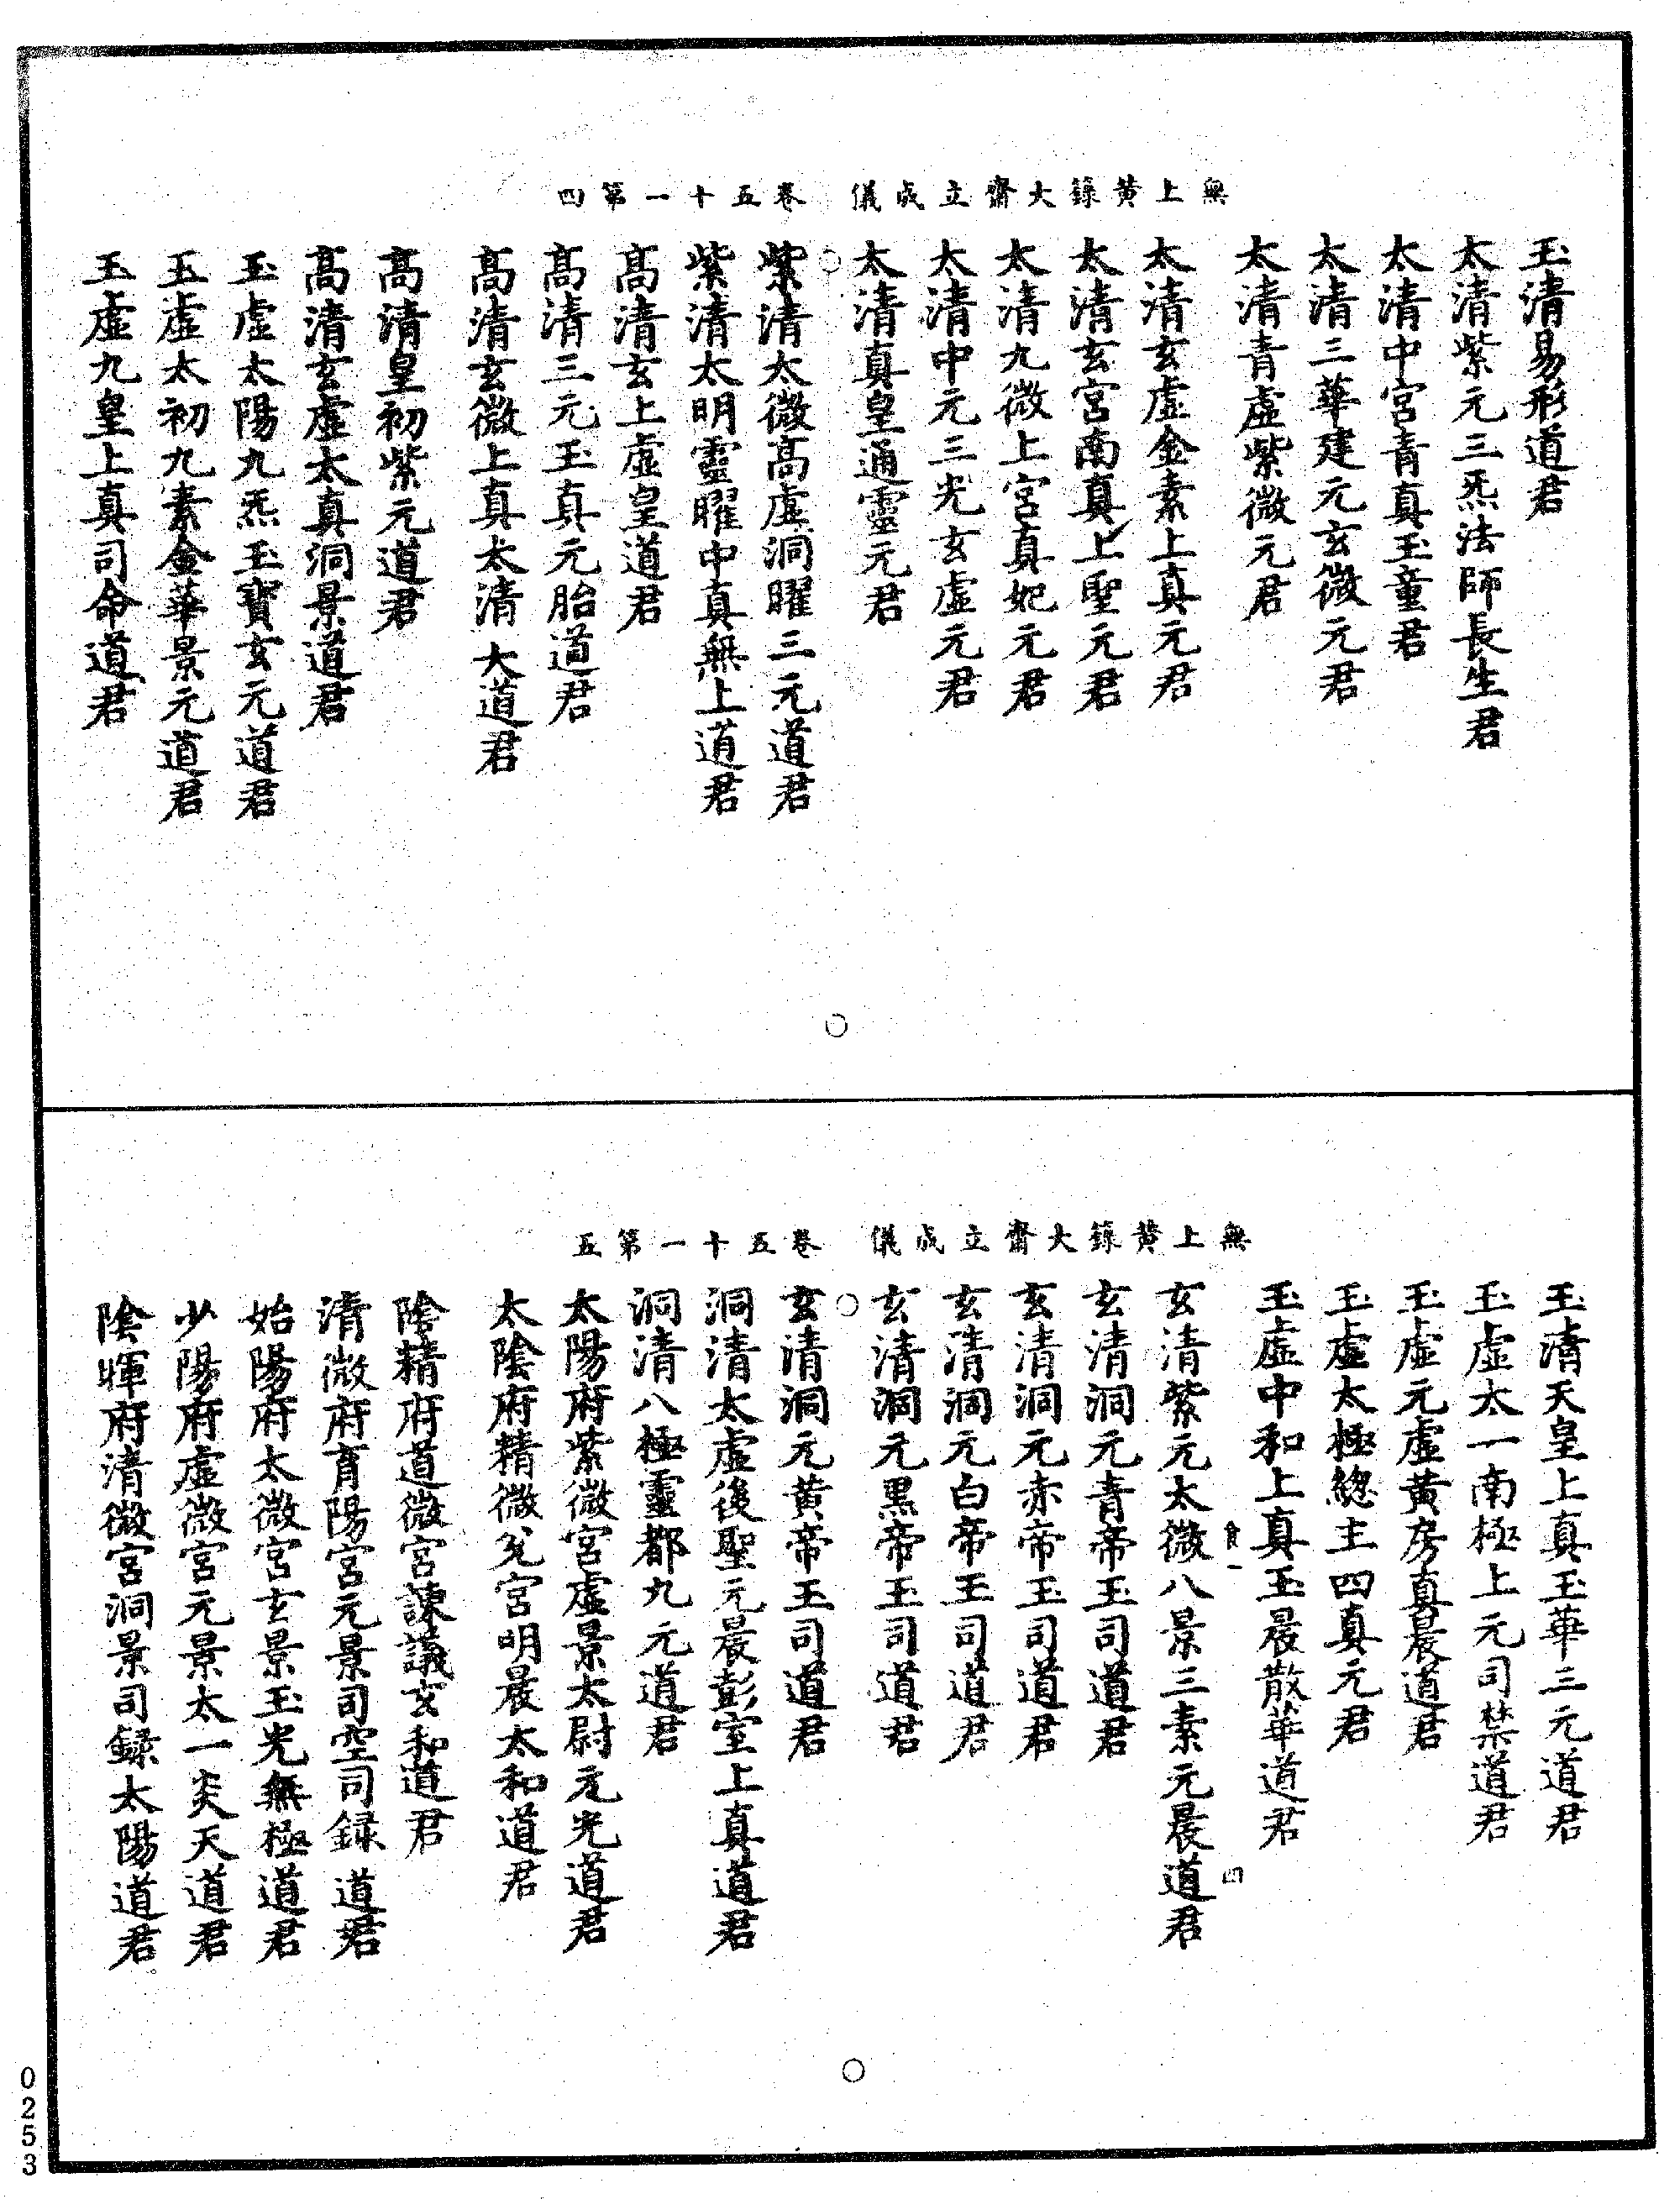 無上黃籙大齋立成儀 卷五十一第四
玉清易形道君
太清紫元三炁法師長生君
太清中宮青真玉童君
太清三華建元玄微元君
太清青虛紫微元君
太清玄虛金素上真元君
太清玄宮南真上聖元君
太清九微上宮真妃元君
太清中元三光玄虛元君
太清真皇通靈元君
紫清太微高虛洞曜三元道君
紫清太明靈曜中真無上道君
高清玄上虛皇道君
高清三元玉真元胎道君
高清玄微上真太清大道君
高清皇初紫元道君
高清玄虛太真洞景道君
玉虛太陽九炁玉寶玄元道君
玉虛太初九素金華景元道君
玉虛九皇上真司命道君
無上黃籙大齋立成儀 卷五十一第五
玉清天皇上真玉華三元道君
玉虛太一南極上元司禁道君
玉虛元虛黃房真晨道君
玉虛太極總主四真元君
玉虛中和上真玉晨散華道君
食一 四
玄清紫元太微八景三素元晨道君
玄清洞元青帝玉司道君
玄清洞元赤帝玉司道君
玄清洞元白帝玉司道君
玄清洞元黑帝玉司道君
玄清洞元黃帝玉司道君
洞清太虛後聖元晨彭室上真道君
洞清八極靈都九元道君
太陽府紫微宮虛景太尉元光道君
太陰府精微兌宮明晨太和道君
陰精府道微宮諫議玄和道君
清微府育陽宮元景司空司錄道君
始陽府太微宮玄景玉光無極道君
少陽府虛微宮元景太一炎天道君
陰暉府清微宮洞景司錄太陽道君
0253